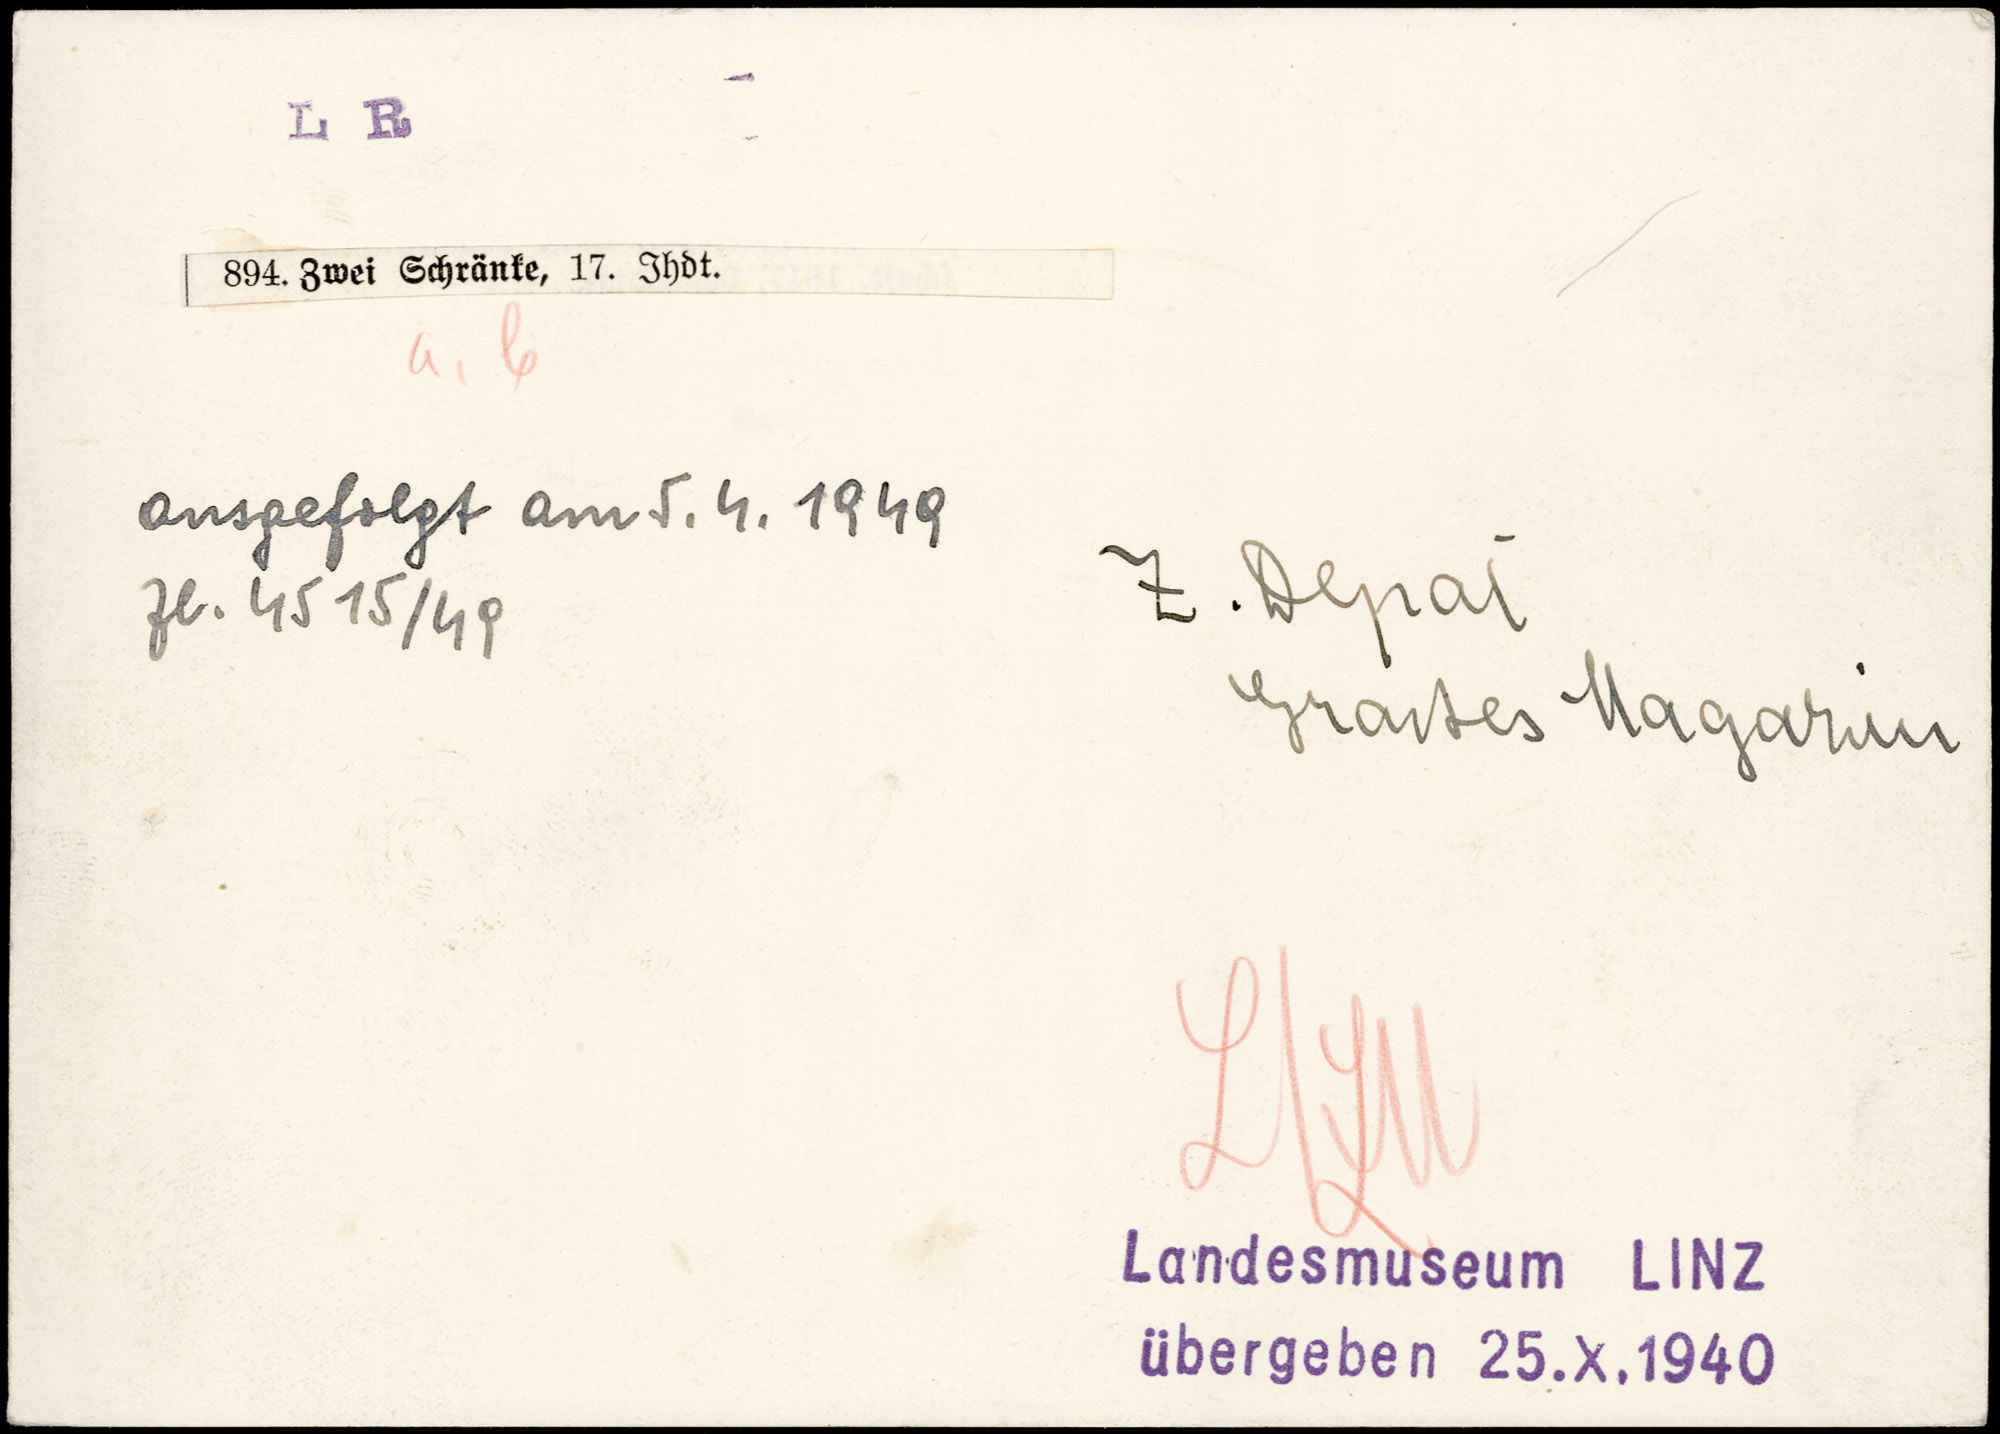 L R
894. Zwei Schränke, 17. Jhdt.
a, b
ausgefolgt am 5. 4. 1949
Zl. 4515/49
Z. Depot
Grosses Magazin
L/LM
Landesmuseum LINZ
übergeben 25.X.1940